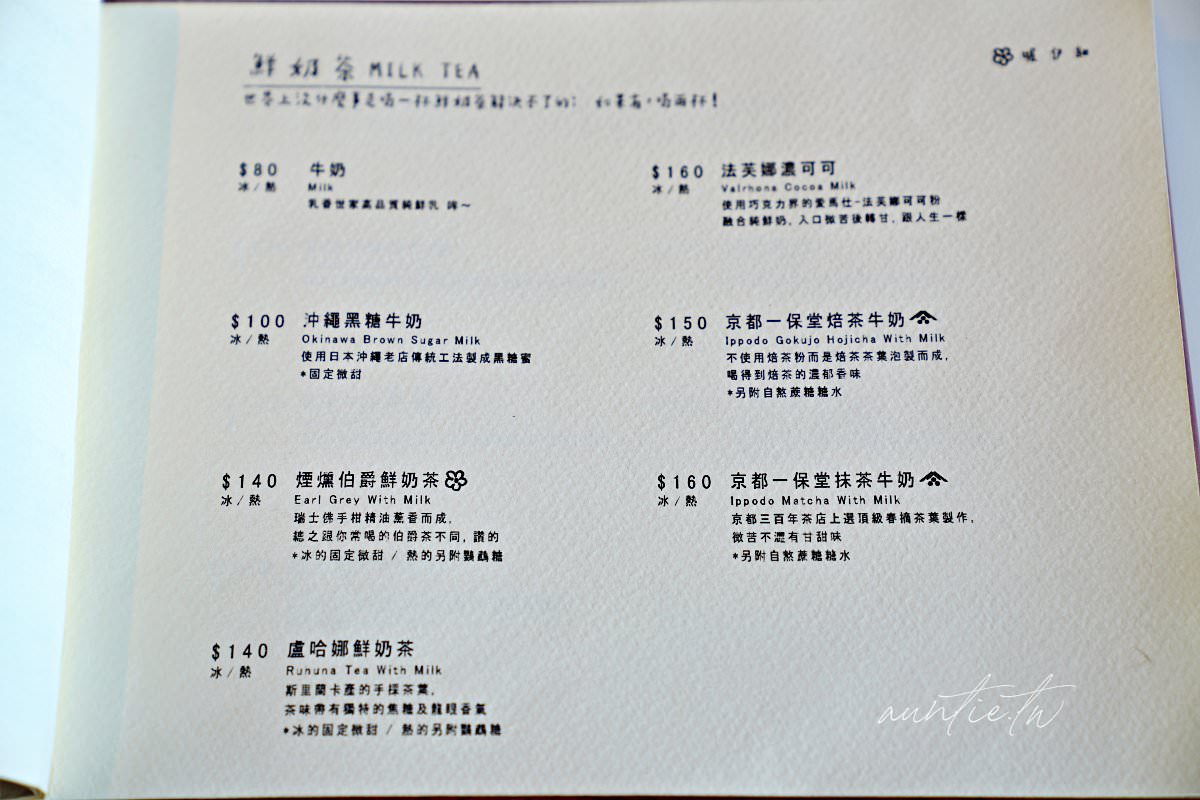 鮮奶茶 MILK TEA
世界上沒什麼事是喝一杯鮮奶茶解決不了的; 如果有,喝兩杯!
$80 牛奶
冰/熱 Milk
乳香世家高品質純鮮乳 哞~
$100 沖繩黑糖牛奶
冰/熱 Okinawa Brown Sugar Milk
使用日本沖繩老店傳統工法製成黑糖蜜
*固定微甜
$140 煙燻伯爵鮮奶茶
冰/熱 Earl Grey With Milk
瑞士佛手柑精油薰香而成,
總之跟你常喝的伯爵茶不同, 讚的
*冰的固定微甜 / 熱的另附鸚鵡糖
$140 盧哈娜鮮奶茶
冰/熱 Ruhuna Tea With Milk
斯里蘭卡產的手採茶葉,
茶味帶有獨特的焦糖及龍眼香氣
*冰的固定微甜 / 熱的另附鸚鵡糖
$160 法芙娜濃可可
冰/熱 Valrhona Cocoa Milk
使用巧克力界的愛馬仕-法芙娜可可粉
融合純鮮奶, 入口微苦後轉甘, 跟人生一樣
$150 京都一保堂焙茶牛奶
冰/熱 Ippodo Gokujo Hojicha With Milk
不使用焙茶粉而是焙茶茶葉泡製而成,
喝得到焙茶的濃郁香味
*另附自熬蔗糖糖水
$160 京都一保堂抹茶牛奶
冰/熱 Ippodo Matcha With Milk
京都三百年茶店上選頂級春摘茶葉製作,
微苦不澀有甘甜味
*另附自熬蔗糖糖水
auntie.tw